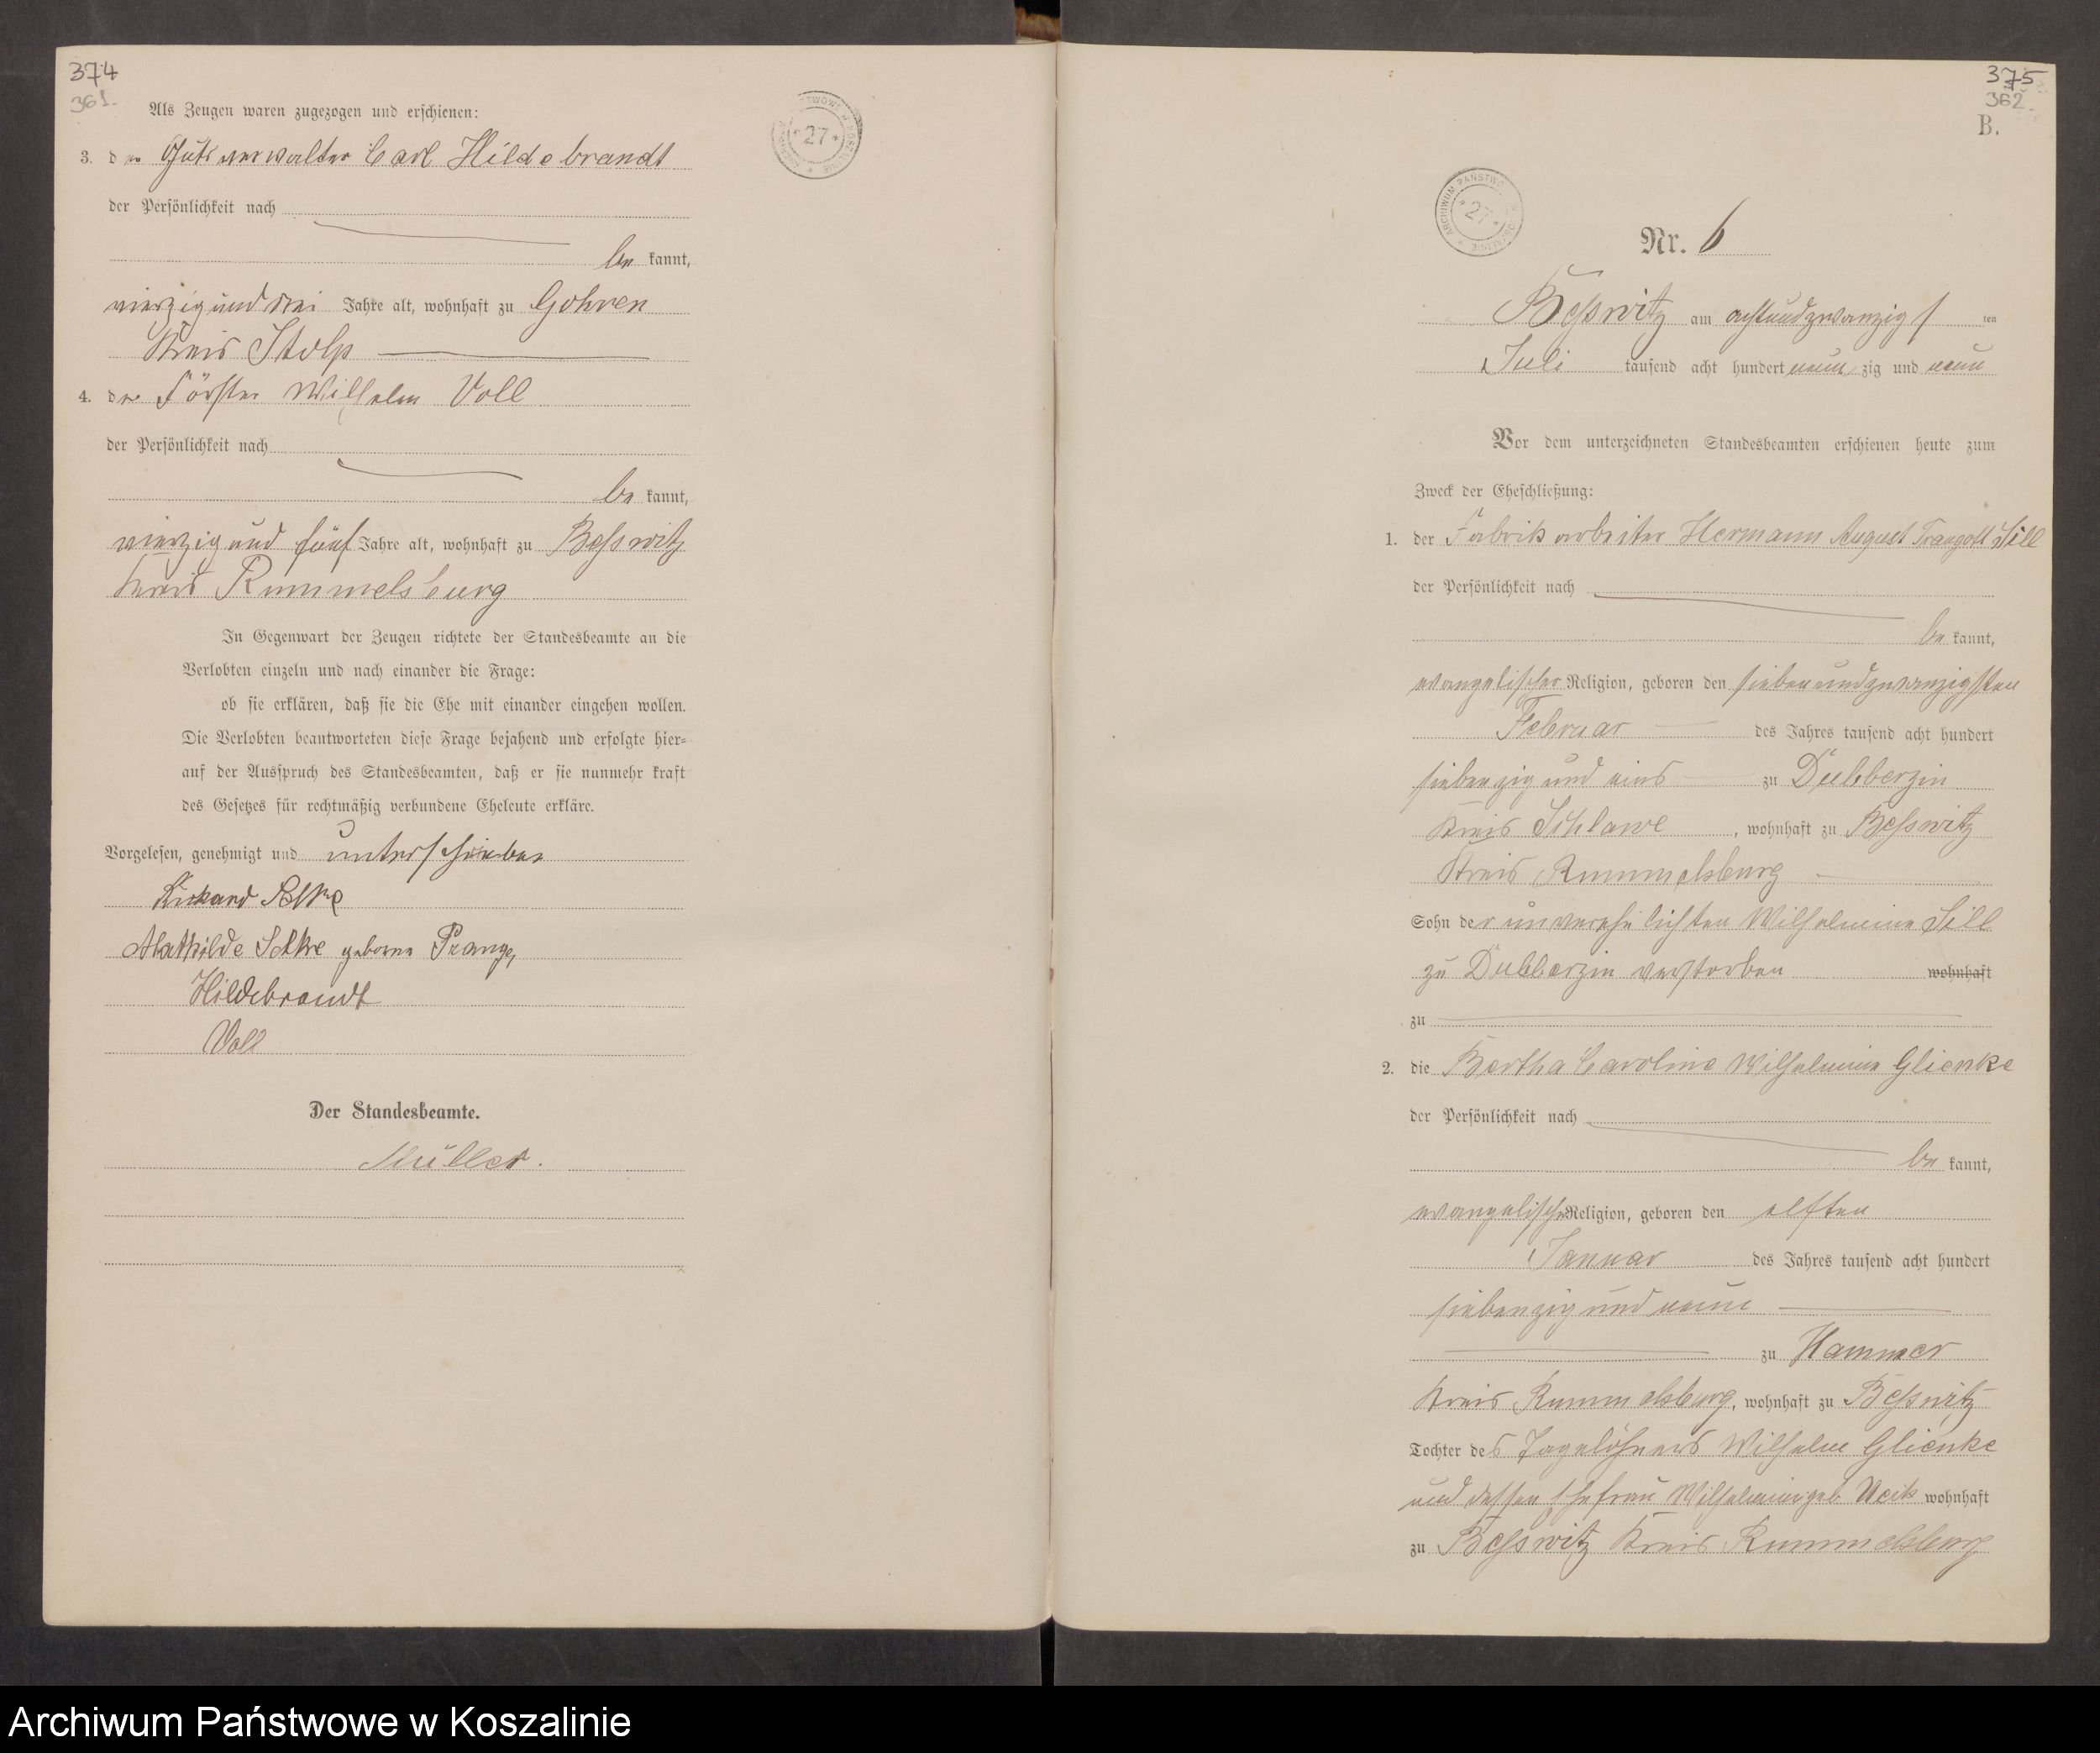 374
361.
Als Zeugen waren zugezogen und erschienen:
3. der Gutsverwalter Carl Hildebrandt
der Persönlichkeit nach
be kannt,
vierzig und drei Jahre alt, wohnhaft zu Gohren
Kreis Stolp
4. der Förster Wilhelm Voll
der Persönlichkeit nach
be kannt,
vierzig und fünf Jahre alt, wohnhaft zu Beßwitz
Kreis Rummelsburg
In Gegenwart der Zeugen richtete der Standesbeamte an die
Verlobten einzeln und nach einander die Frage:
ob sie erklären, daß sie die Ehe mit einander eingehen wollen.
Die Verlobten beantworteten diese Frage bejahend und erfolgte hier-
auf der Ausspruch des Standesbeamten, daß er sie nunmehr kraft
des Gesetzes für rechtmäßig verbundene Eheleute erkläre.
Vorgelesen, genehmigt und unterschrieben
Richard
Mathilde geborne Prange
Hildebrandt
Voll
Der Standesbeamte.
Müller.
27
375
362.
B.
ARCHIWUM PAŃSTWO
27
Nr. 6
Beßwitz am achtundzwanzigs ten
Juli tausend acht hundert neun zig und neun
Vor dem unterzeichneten Standesbeamten erschienen heute zum
Zweck der Eheschließung:
1. der Fabrikarbeiter Hermann August Traugott Sill
der Persönlichkeit nach
be kannt,
evangelischer Religion, geboren den siebenundzwanzigsten
Februar des Jahres tausend acht hundert
siebenzig und eins zu Dubberzin
Kreis Schlawe, wohnhaft zu Beßwitz
Kreis Rummelsburg
Sohn der unverehelichten Wilhelmine Sill
zu Dubberzin verstorben wohnhaft
zu
2. die Bertha Caroline Wilhelmine Glienke
der Persönlichkeit nach
be kannt,
evangelischer Religion, geboren den elften
Januar des Jahres tausend acht hundert
siebenzig und neun
zu Hammer
Kreis Rummelsburg, wohnhaft zu Beßwitz
Tochter des Tagelöhners Wilhelm Glienke
und dessen Ehefrau Wilhelmine geb. wohnhaft
zu Beßwitz Kreis Rummelsburg
Archiwum Państwowe w Koszalinie